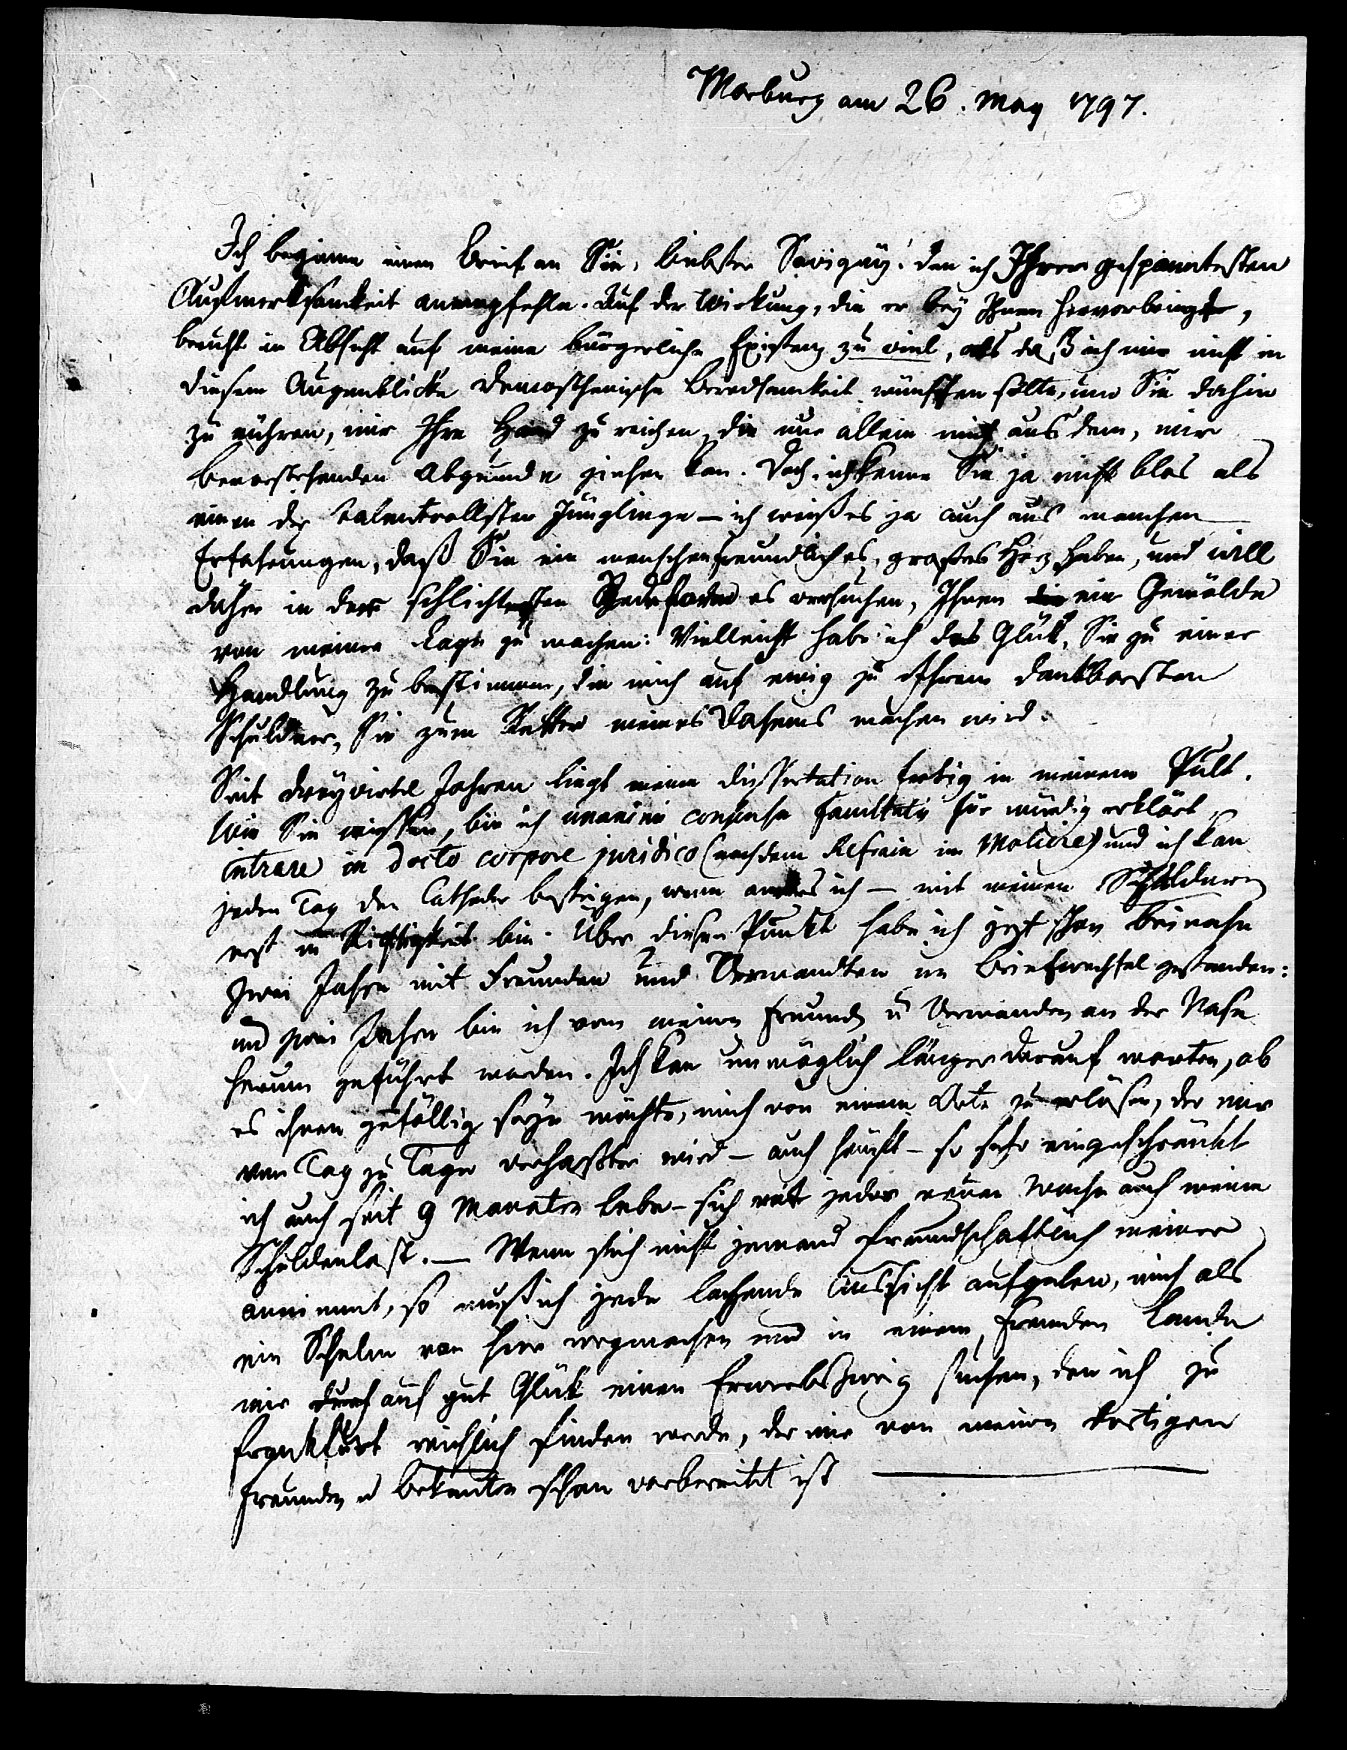 Marburg am 26. May 1797.
Ich beginne einen Brief an Sie, liebster Savigny! den ich Ihrer gespanntesten
Aufmerksamkeit anempfehle. Auf der Wirkung, die er bey Ihnen hervorbringt,
beruht in Absicht auf meine bürgerliche Existenz zu viel, als daß ich mir nicht in
diesem Augenblicke Demosthenische Beredsamkeit wünschen sollte, um Sie dahin
zu rühren, mir Ihre Hand zu reichen, die nur allein mich aus dem, mir
bevorstehenden Abgrunde ziehen kan. Doch ich kenne Sie ja nicht blos als
einen der talentvollsten Jünglinge – ich weiß es ja auch aus manchen
Erfahrungen, daß Sie ein menschenfreundliches, großes Herz haben, und will
daher in der schlichtesten Redeform es versuchen, Ihnen ein Gemälde
von meiner Lage zu machen: Vielleicht habe ich das Glük, Sie zu einer
Handlung zu bestimmen, die mich auf ewig zu Ihrem dankbarsten
Schuldner, Sie zum Retter meines Daseins machen wird.
Seit dreyviertel Jahren liegt meine Dissertation fertig in meinem Pult.
Wie Sie wissen, bin ich unanimi consensu facultatis für würdig erklärt
intrare in docto corpore juridico (nach dem Refrain im Moliere) und ich kan
jeden Tag den Catheder besteigen, wenn anders ich – mit meinen Schuldnern
erst in Richtigkeit bin. Über diesen Punkt habe ich jezt schon beinahe
zwei Jahre mit Freunden und Verwandten im Briefwechsel gestanden:
und zwei Jahre bin ich von meinen Freunden u Verwanden an der Nase
herum geführt worden. Ich kan unmöglich länger darauf warten, ob
es ihnen gefällig seyn möchte, mich von einem Orte zu erlösen, der mir
von Tag zu Tage verhaßter wird – auch häuft – so sehr eingeschränkt
ich auch seit 9 Monaten lebe – sich mit jeder neuen Woche auch meine
Schuldenlast. — Wenn sich nicht jemand freundschaftlich meiner
annimmt, so muß ich jede lachende Aussicht aufgeben, mich als
ein Schelm von hier wegmachen und in einem fremden Lande
mir auf gut Glük einen Erwerbszweig suchen, den ich zu
Frankfurt reichlich finden werde, der mir von meinen dortigen
Freunden u Bekanten schon vorbereitet ist —